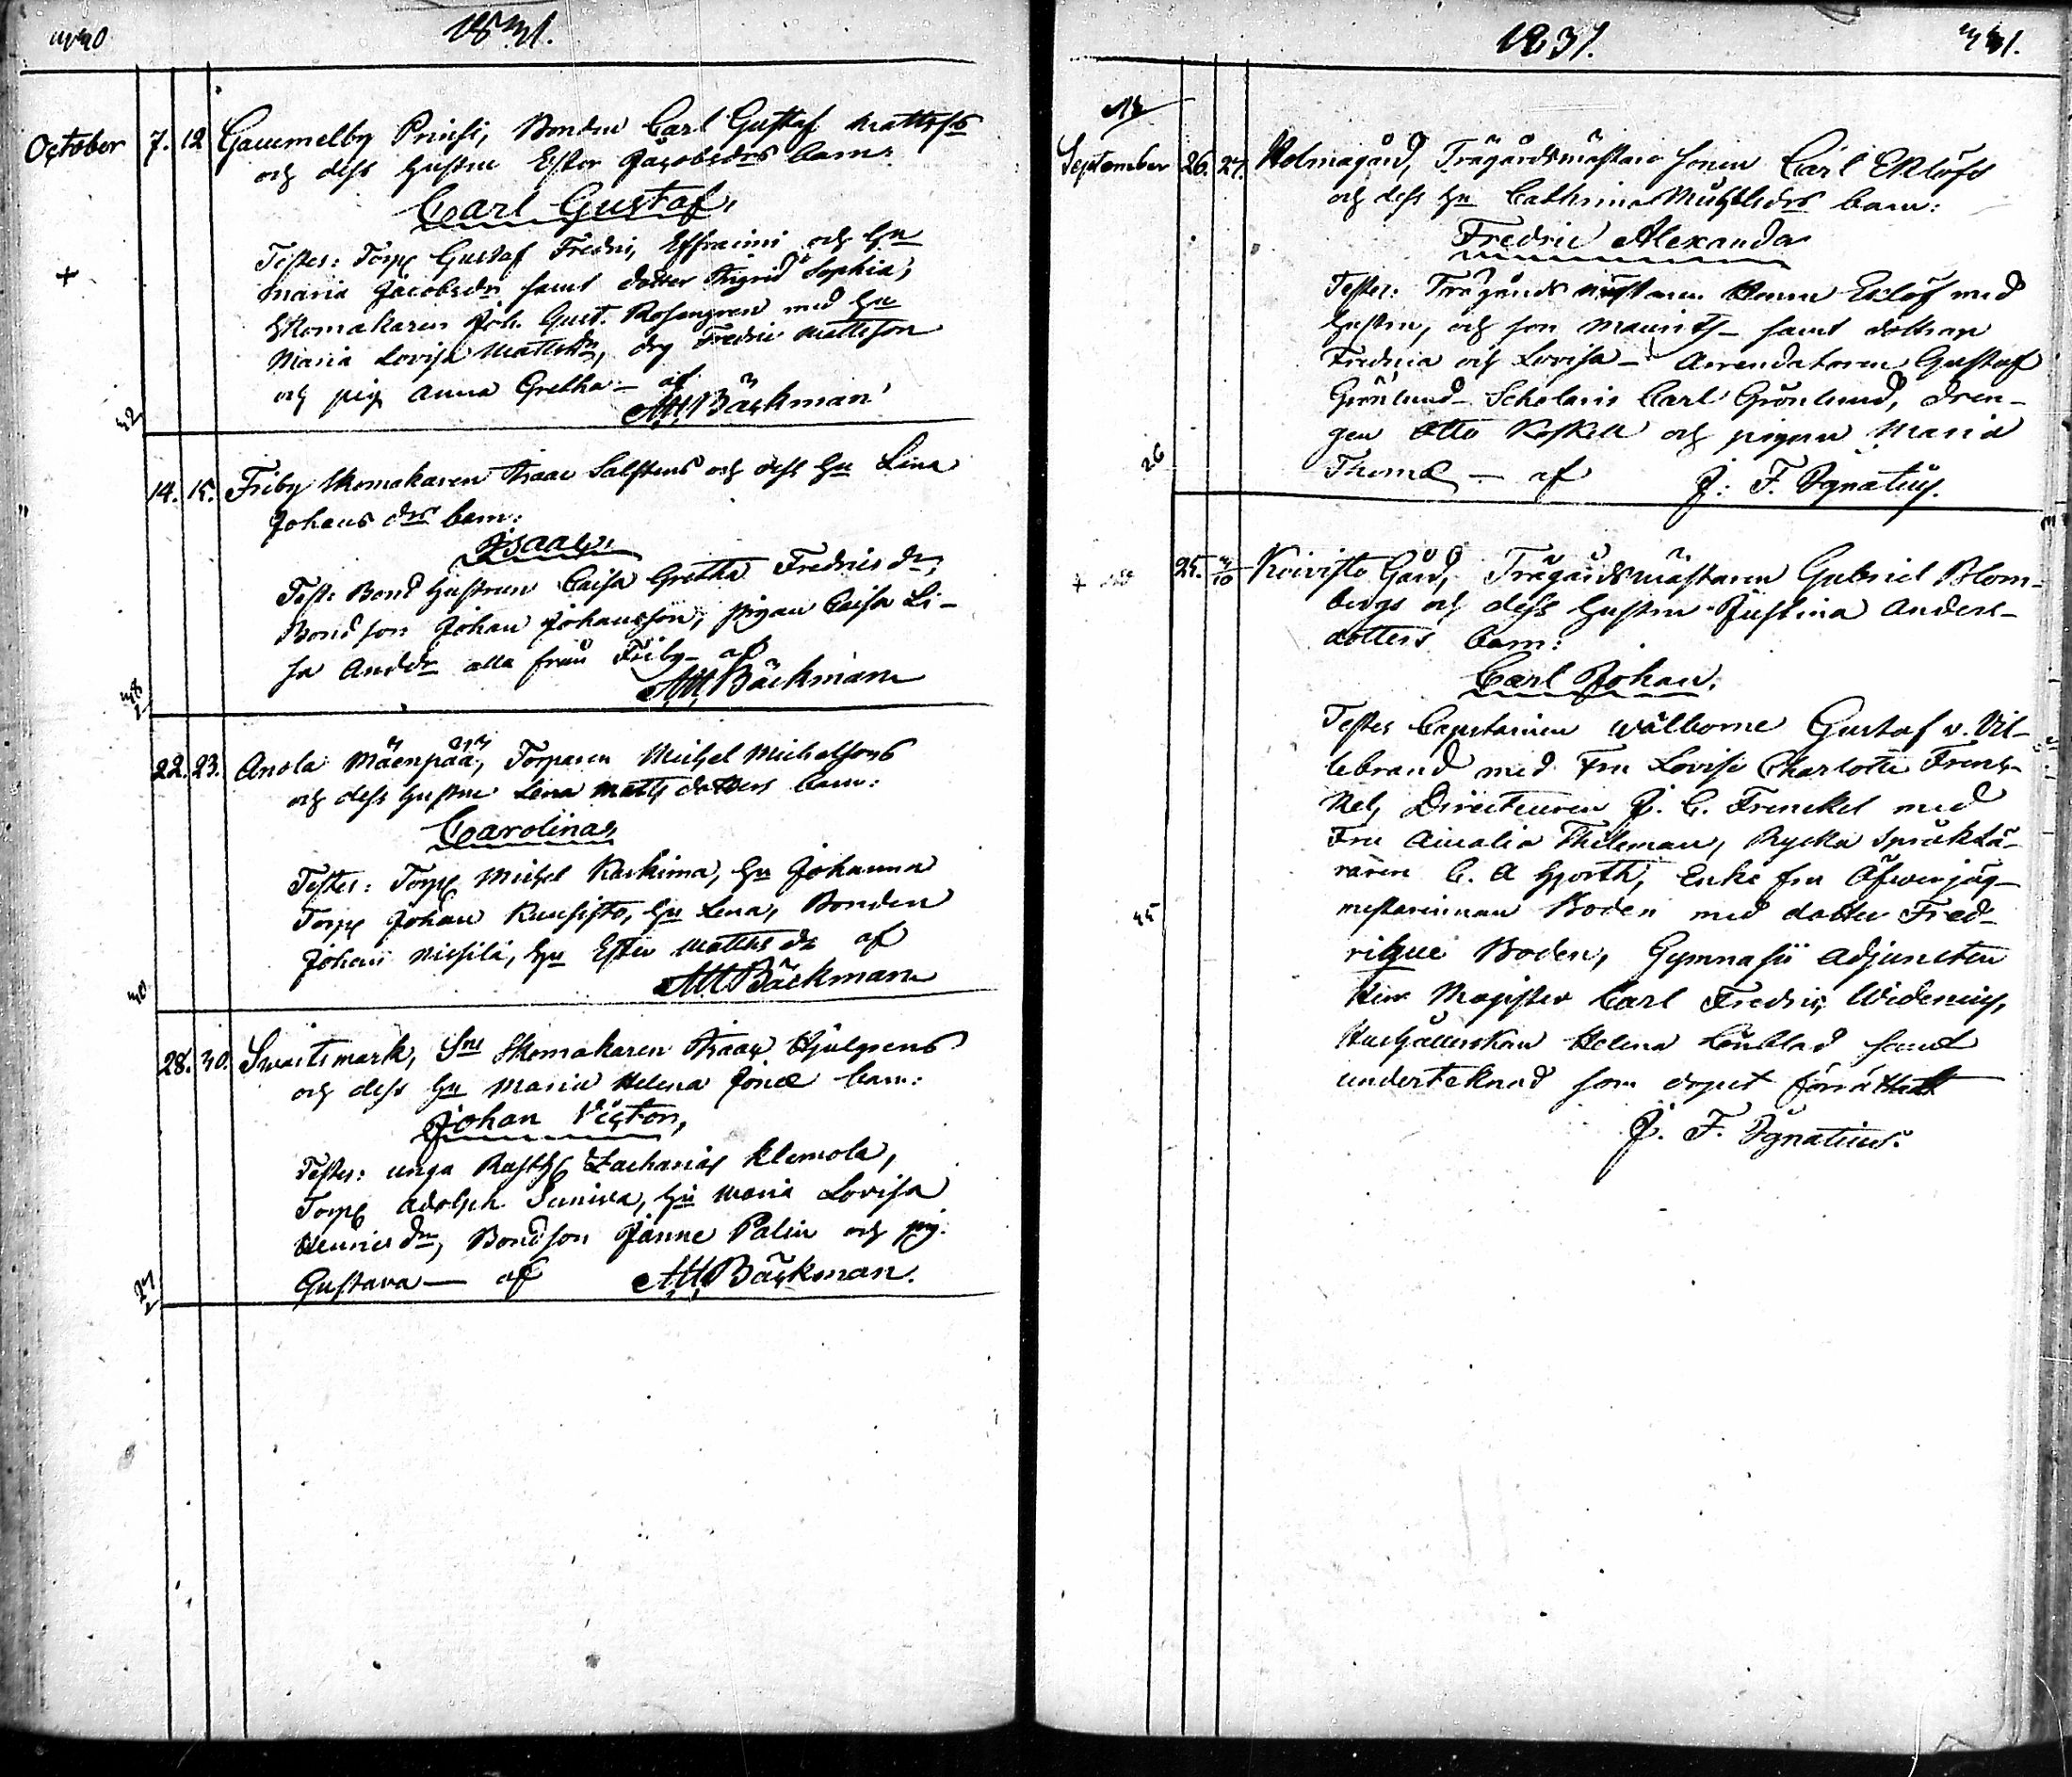 1831.
October 7. 12 Gammelby Prinsi, Bonden Carl Gustaf Mattss
och dess hustru Ester Jacobsdrs barn:
Carl Gustaf,
Testes: Torp Gustaf Fredri, Effraimi och hu
Maria Jacobsdr samt dotter Sigrid Sophia,
Skomakaren Joh. Gust. Rosengren med hu
Maria Lovisa Mattsdr, drg Fredric Mattsson
och pig Anna Gretha — af
AM Bäckman
32
14. 15. Friby Skomakaren Isaac Salstens och dess hu Lina
Johans drs barn:
Isaac,
Test: Bond hustrun Caisa Gretha Fredrics dr,
Bond son Johan Johansson, pigan Caisa Li-
sa Andsdr alla från Friby — af
AM Bäckman
38
22. 23. Anola Mäenpää, Torparen Michel Michelsons
och dess hustru Lena Matts dotters barn:
Carolina,
Testes: Torp Michel Karhima, hu Johanna
Torp Johan Kuusisto, hu Lena, Bonden
Johan Nissilä, hu Ester Matts dr af
AM Bäckman
30
28. 30. Swartsmark, Sne Skomakaren Isaac Hjulgrens
och dess hu Maria Helena Jonæ barn:
Johan Victor,
Testes: unga Rusth Zacharias Klemola,
Torp Adolph Suniva, hu Maria Lovisa
Henrics dr, Bondson Janne Palin och pig.
Gustava — af AM Bäckman.
27
1831.
September 26. 27. Holmagård, Trägårdsmästare sonen Carl Eklöfs
och dess hu Cathrina Michelsdrs barn:
Fredric Alexander
Testes: Trägårds mästaren Herrn Eklöf med
hustru, och son Maurits — samt döttrar
Fredrica och Lovisa — Arrendatoren Gustaf
Grönlund — Scholaris Carl Grönlund, dren-
gen Otto Koskell och pigan Maria
Thomæ — af J. F. Ignatius.
26
25. 4/10 Koivisto Gård, Trägårdsmästaren Gabriel Blom-
bergs och dess hustru Justina Anders-
dotters barn:
Carl Johan,
Testes Capitainen wälborne Gustaf v. Vil-
lebrand med Fru Lovisa Charlotte Frenc-
kel, Directeuren J. C. Frenckel med
Fru Amalia Thileman, Ryska språklä-
raren C. A Hjorth, Enke fru Öfwerjäg-
mestarinnan Boden med dotter Fred-
rique Boden, Gymnasii Adjuncten
Herr Magister Carl Fredric Widenius,
Hushållerskan Helena Lönblad samt
undertecknad som dopet förrättadt
J. F. Ignatius.